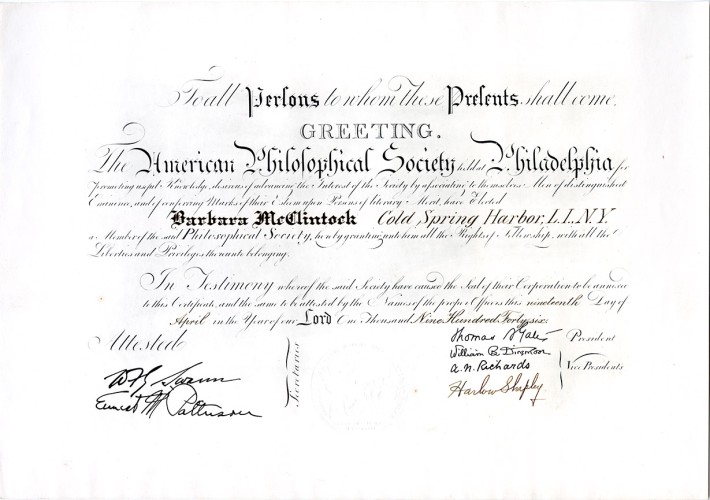 To all Persons to whom these Presents shall come,
GREETING.
The American Philosophical Society held at Philadelphia for
promoting useful Knowledge, desirous of advancing the Interest of the Society by associating to themselves Men of distinguished
Eminence, and of conferring Marks of their Esteem upon Persons of literary Merit, have Elected
Barbara McClintock Cold Spring Harbor, L.I., N.Y.
a Member of the said Philosophical Society, hereby granting unto him all the Rights of Fellowship, with all the
Liberties and Privileges thereunto belonging.
In Testimony whereof the said Society have caused the Seal of their Corporation to be annexed
to this Certificate, and the same to be attested by the Names of the proper Officers this nineteenth Day of
April in the Year of our Lord One Thousand Nine Hundred Forty six.
Attested
Secretaries
W F G Swann
Ernest M Patterson
Thomas S Gates President
William B. Dinsmoor
A. N. Richards Vice Presidents
Harlow Shapley